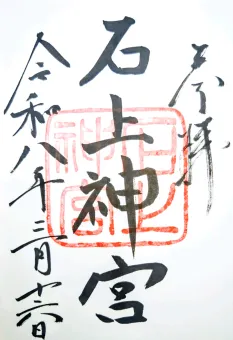 奉拝
石上神宮
石上
神宮
令和八年三月十六日